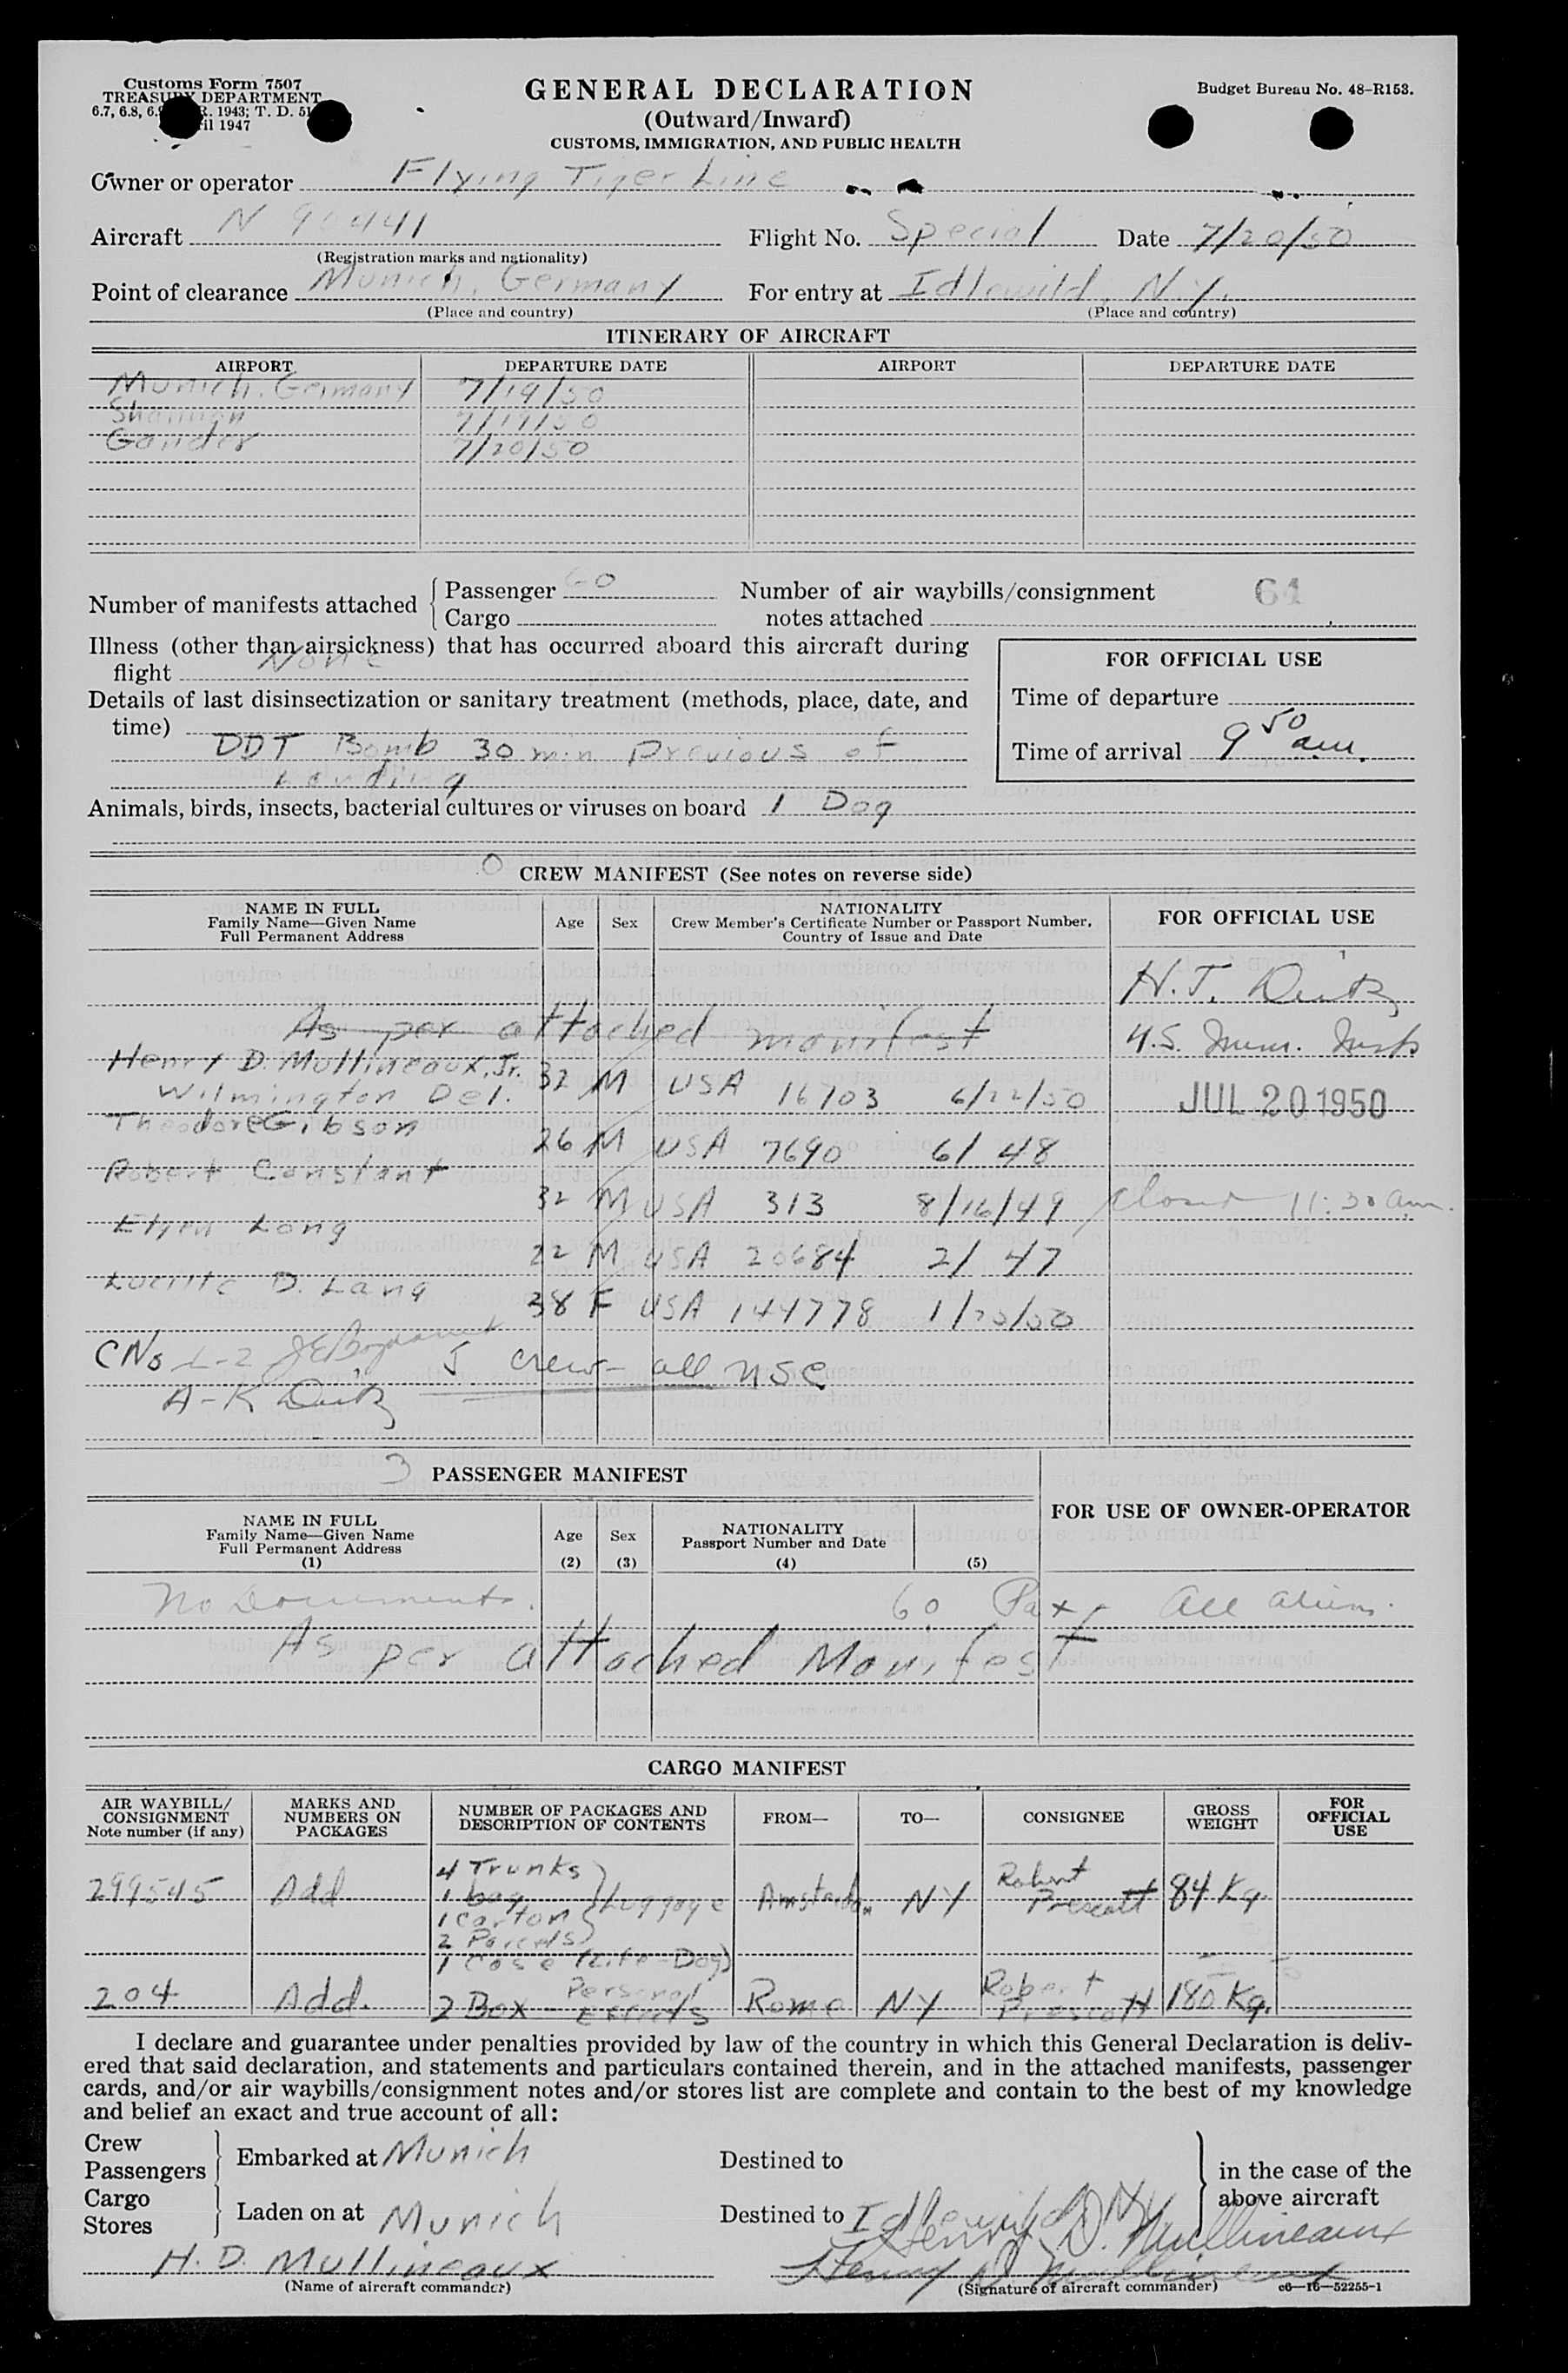 Customs Form 7507
TREASURY DEPARTMENT
1943; T. D.
1947
GENERAL DECLARATION
(Outward/Inward)
CUSTOMS, IMMIGRATION, AND PUBLIC HEALTH
Budget Bureau No. 48-R153.
Owner or operator Flying Tiger Line
Aircraft N 90441 Flight No. Special Date 7/20/50
(Registration marks and nationality)
Point of clearance Munich, Germany For entry at Idlewild, N.Y.
(Place and country) (Place and country)
ITINERARY OF AIRCRAFT
AIRPORT DEPARTURE DATE AIRPORT DEPARTURE DATE
Munich, Germany 7/19/50
Shannon 7/19/50
Gander 7/20/50
Number of manifests attached { Passenger 60 Number of air waybills/consignment
Cargo notes attached
61
Illness (other than airsickness) that has occurred aboard this aircraft during
flight None
Details of last disinsectization or sanitary treatment (methods, place, date, and
time)
DDT Bomb 30 min previous of
Landing
FOR OFFICIAL USE
Time of departure
Time of arrival 9 50 am.
Animals, birds, insects, bacterial cultures or viruses on board 1 Dog
0 CREW MANIFEST (See notes on reverse side)
NAME IN FULL
Family Name—Given Name
Full Permanent Address
Age Sex
NATIONALITY
Crew Member's Certificate Number or Passport Number,
Country of Issue and Date
FOR OFFICIAL USE
H. J.
As per attached manifest
U.S. Imm. Insp
Henry D. Mullineaux, Jr.
Wilmington Del. 32 M USA 16103 6/22/50
JUL 20 1950
Theodore Gibson
26 M USA 7690 6/ 48
Robert Constant
32 M USA 313 8/16/49
Closed 11:30 am.
Long
22 M USA 20684 2/ 47
Lucille D. Lang
38 F USA 144778 1/20/50
CNs L-2 5 crew - all USC
A-K
3 PASSENGER MANIFEST
NAME IN FULL
Family Name—Given Name
Full Permanent Address
(1)
Age
(2)
Sex
(3)
NATIONALITY
Passport Number and Date
(4) (5)
FOR USE OF OWNER-OPERATOR
No Documents. 60 Pax - All aliens.
As per attached Manifest
CARGO MANIFEST
AIR WAYBILL/
CONSIGNMENT
Note number (if any)
MARKS AND
NUMBERS ON
PACKAGES
NUMBER OF PACKAGES AND
DESCRIPTION OF CONTENTS
FROM— TO— CONSIGNEE
GROSS
WEIGHT
FOR
OFFICIAL
USE
299545 Add
4 Trunks
1 bag
1 carton
2 Parcels
Luggage
Amsterdam NY Robert Prescott 84 Kg.
1 Case (Life-Dog)
204 Add. 2 Box - Personal Effects Rome NY Robert Prescott 180 Kg.
I declare and guarantee under penalties provided by law of the country in which this General Declaration is deliv-
ered that said declaration, and statements and particulars contained therein, and in the attached manifests, passenger
cards, and/or air waybills/consignment notes and/or stores list are complete and contain to the best of my knowledge
and belief an exact and true account of all:
Crew
Passengers } Embarked at Munich Destined to
in the case of the
above aircraft
Cargo
Stores } Laden on at Munich Destined to Idlewild NY
Henry D. Mullineaux
H. D. Mullineaux Henry D Mullineaux
(Name of aircraft commander) (Signature of aircraft commander) c6—16—52255-1